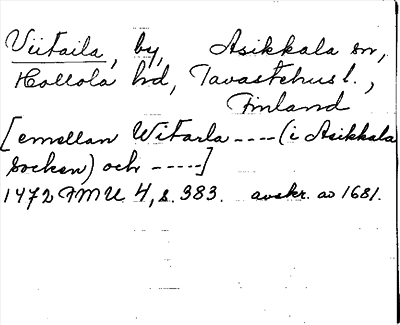 Viitaila, by, Asikkala sn,
Hollola hd, Tavastehus l.,
Finland
[emellan Witarla ---- (i Asikkala
socken) och -----]
1472 FMU 4, s. 383. avskr. av 1681.